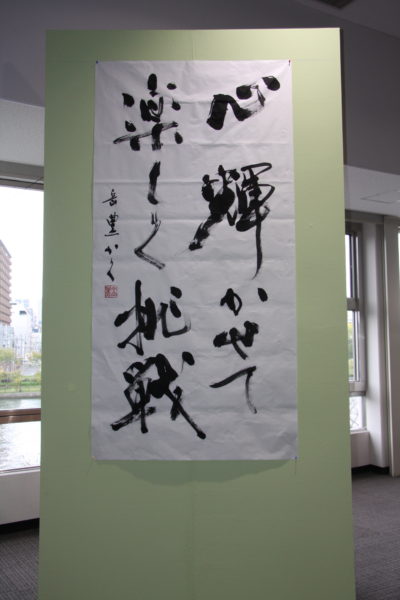 心輝かせて
楽しく挑戦
岳豊かく